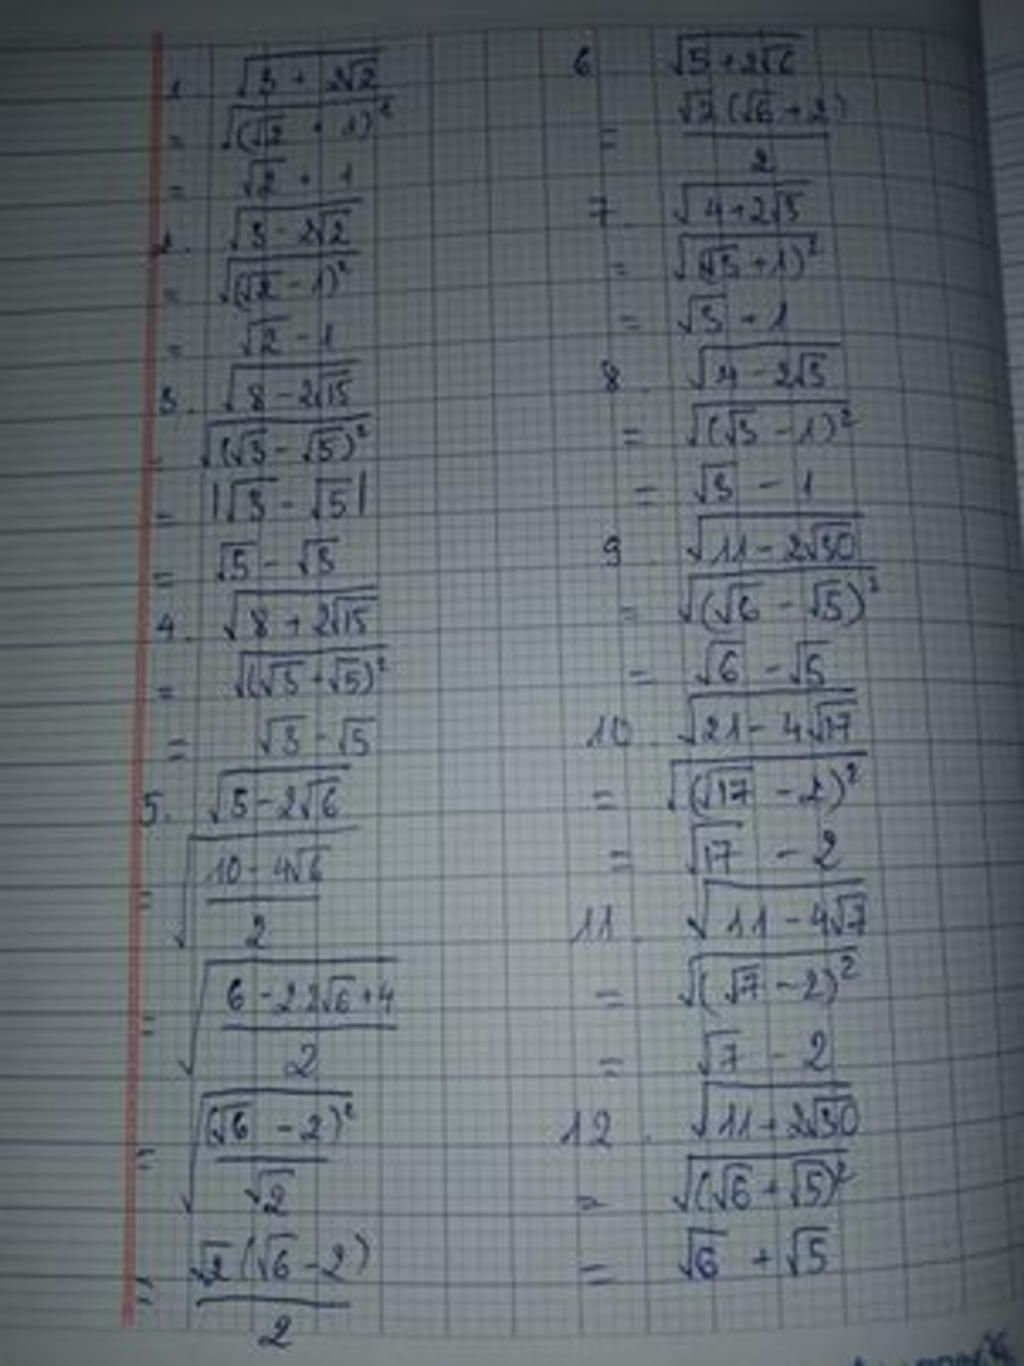 1. √(3 + 2√2)
= √((√2 + 1)²)
= √2 + 1
2. √(3 - 2√2)
= √((√2 - 1)²)
= √2 - 1
3. √(8 - 2√15)
= √((√3 - √5)²)
= |√3 - √5|
= √5 - √3
4. √(8 + 2√15)
= √((√3 + √5)²)
= √3 - √5
5. √(5 - 2√6)
= √((10 - 4√6)/2)
= √((6 - 2.2√6 + 4)/2)
= √((√6 - 2)²/√2)
= √2(√6 - 2)/2
6 √(5 + 2√6)
= √2(√6 + 2)/2
7. √(4 + 2√3)
= √((√3 + 1)²)
= √3 + 1
8. √(4 - 2√3)
= √((√3 - 1)²)
= √3 - 1
9 √(11 - 2√30)
= √((√6 - √5)²)
= √6 - √5
10. √(21 - 4√17)
= √((√17 - 2)²)
= √17 - 2
11. √(11 - 4√7)
= √((√7 - 2)²)
= √7 - 2
12. √(11 + 2√30)
= √((√6 + √5)²)
= √6 + √5